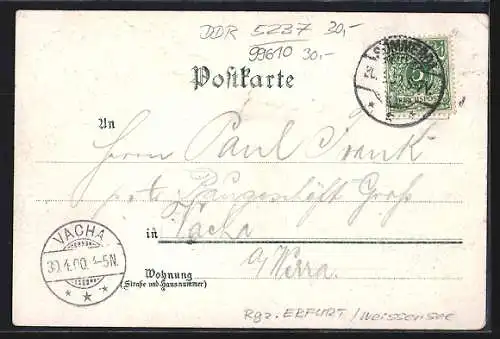 DDR 5237 30,-
99610 30,-
Postkarte
An
Herrn Paul Frank
Baugeschäft Groß
in Vacha
a/Werra.
Wohnung
(Straße und Hausnummer)
VACHA
30.4.00. 4-5N.
SÖMMERDA
5
Rgz. ERFURT / Weissensee